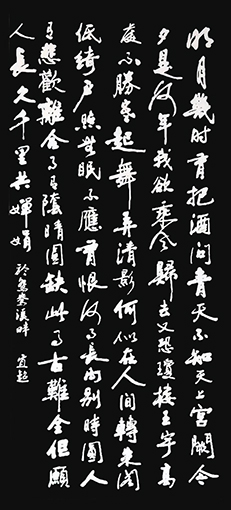 明月幾时有把酒问青天不知天上宫闕今
夕是何年我欲乘风歸去又恐瓊楼玉宇高
處不勝寒起舞弄清影何似在人间轉朱阁
低綺户照无眠不應有恨何事長向别時圓人
有悲歡離合月有陰晴圆缺此事古難全但願
人長久千里共嬋娟 溪畔